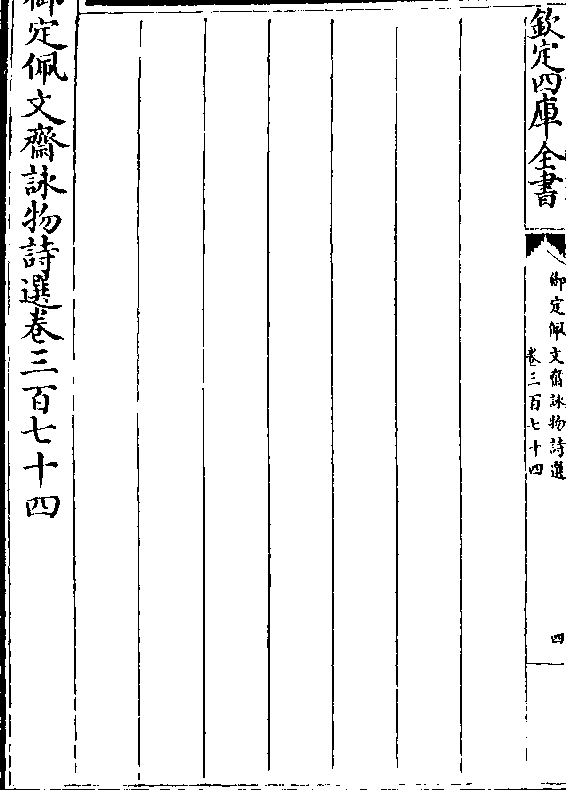 欽定四庫全書
御定佩文齋詠物詩選
卷三百七十四
四
御定佩文齋詠物詩選卷三百七十四